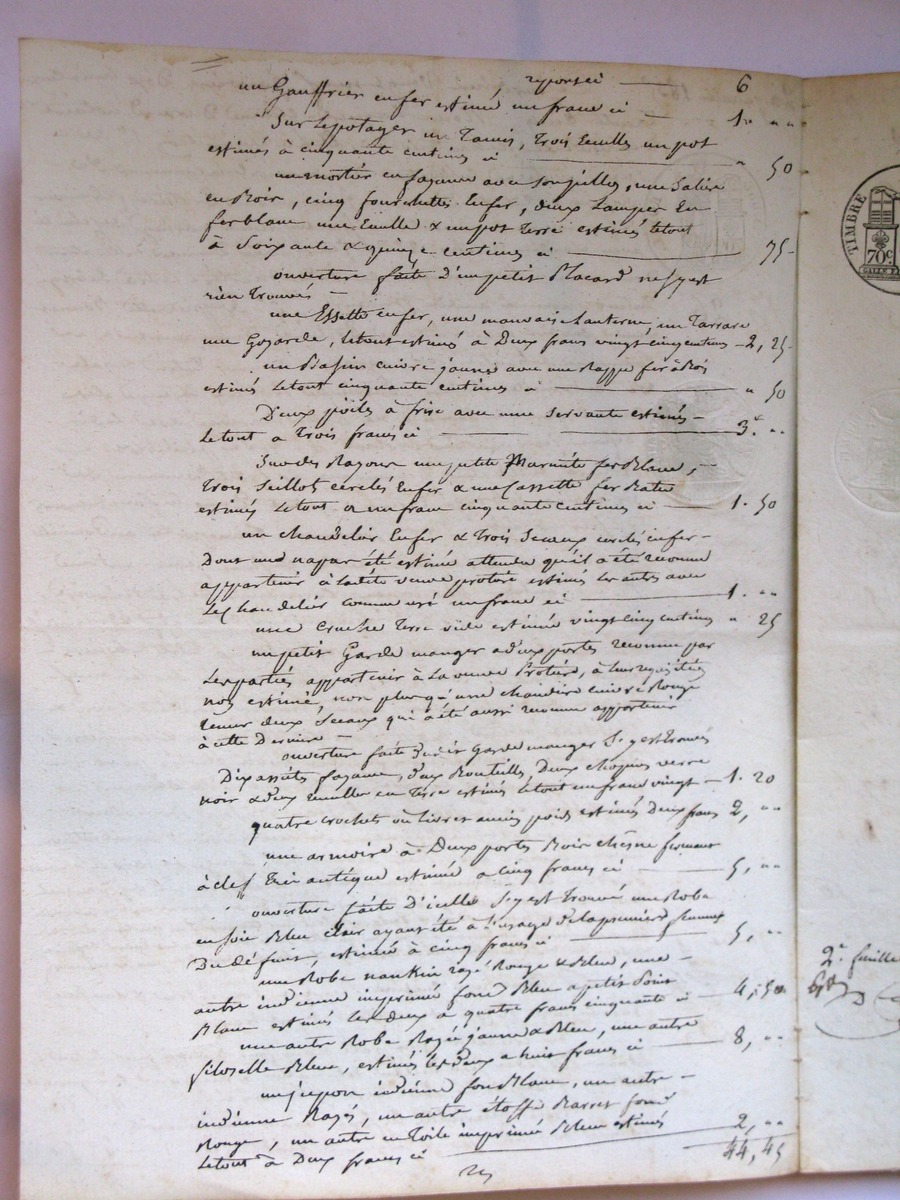 report ci — 6
un Gauffrier en fer estimé un franc ci — 1. " "
Sur le potager un Tamis, Trois Ecuelles un pot
estimés à cinquante centimes ci — " 50
un mortier en fayance avec son pillon, une Salière
en Bois, cinq fourchettes en fer, deux Lampes En
ferblanc une Ecuelle & un pot Terre estimés le tout
à Soixante & quinze centimes ci — 75-
ouverture faite d'un petit Placard ne s'y est
rien trouvé —
une Essette en fer, une mauvaise Lanterne, un Tarrare
une Gojarde, le tout estimé à Deux francs vingt cinq centimes - 2, 25-
un Bassin cuivre jaune avec une Rappe fer à Bois
estimés le tout cinquante centimes ci — " 50
Deux poëles à frire avec une Servante estimés —
le tout à Trois francs ci — 3. " "
Sur des Rayons une petite Marmitte fer Blanc, —
Trois Seillots cerclés En fer & une Cassette fer Batu
estimés Le tout à un franc cinquante centimes ci — 1. 50
un chandelier En fer & Trois Sceaux cerclés en fer —
Dont un n'a pas été estimé attendu qu'il a été reconnu
appartenir à la dite veuve protière estimés les autres avec
Le chandelier comme usé un franc ci — 1. " "
une Cruche Terre vide estimée vingt cinq centimes " 25
un petit Garde manger a deux portes reconnu par
Les parties appartenir à La veuve Protière, à leur réquisition
non estimé, non plus qu'une chaudière cuivre Rouge
tenant deux Sceaux qui a été aussi reconnue appartenir
à cette Dernière —
ouverture faite dudit Garde manger S'y est trouvé
Dix assiettes fayance, deux Bouteilles, Deux chopines verre
noir & deux Ecuelles en Terre estimés le tout un franc vingt — 1. 20
quatre crochets ou Livres ancien poids estimés Deux francs 2, " "
une armoire à Deux portes Bois chêne fermant
à clef Très antique estimée a cinq francs ci — 5, " "
ouverture faite D'icelle S'y est Trouvé une Robe
en Soie Bleu clair ayant été à l'usage de la premiere femme
Du défunt, estimée à cinq francs ci — 5, " "
une Robe nankin rayé Rouge & Bleu, une —
autre indienne imprimée fond Bleu a petit Point
Blanc estimés Les deux a quatre francs cinquante ci — 4, 50
une autre Robe Rayée jaune & Bleu, une autre
filoselle Bleue, estimées les deux a huit francs ci — 8, " "
un jupon indienne fond Blanc, un autre —
indienne Rayés, un autre étoffe Barrée fond
Rouge, un autre en Toile imprimée Bleu estimés
Le tout à Deux francs ci — 2, " "
44, 45
TIMBRE
70c
2e feuille